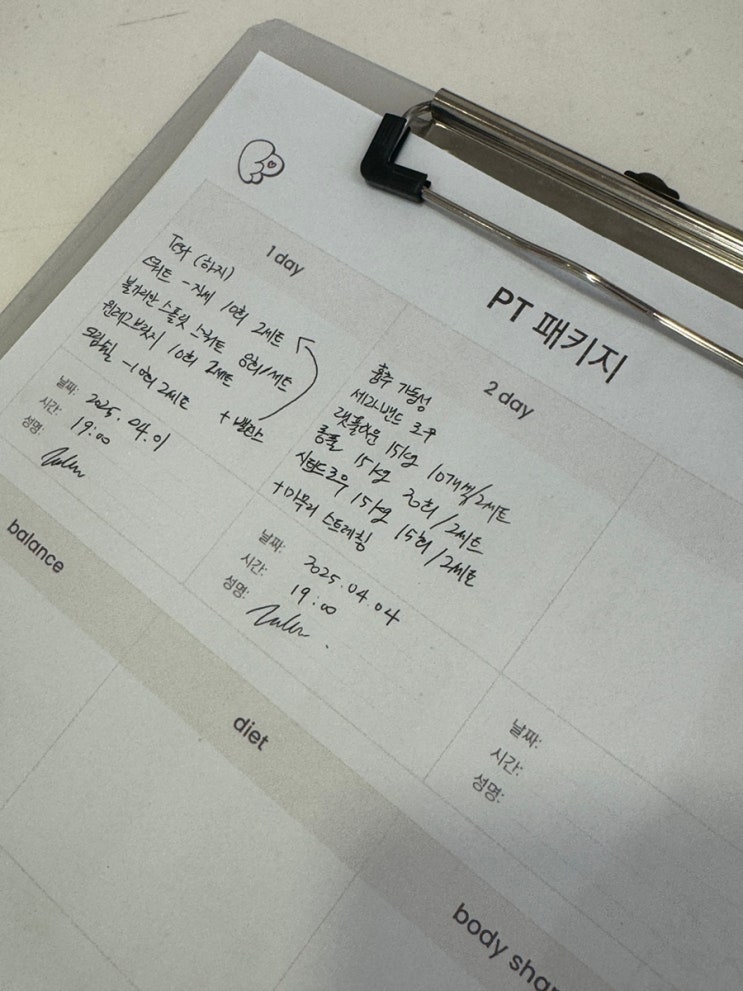 PT 패키지
1 day
Test (하지)
스쿼트 - 자세 10회 2세트
불가리안 스플릿 스쿼트 8회/세트
원레그브릿지 10회 2세트
- 10회 2세트 + 밴만
날짜: 2025.04.01
시간: 19:00
성명:
2 day
흉추 가동성
세라밴드 로우
랫풀다운 15kg 10개씩/2세트
롱풀 15kg 20회/2세트
시티드로우 15kg 15회/2세트
+마무리 스트레칭
날짜: 2025.04.04
시간: 19:00
성명:
날짜:
시간:
성명:
balance
diet
body